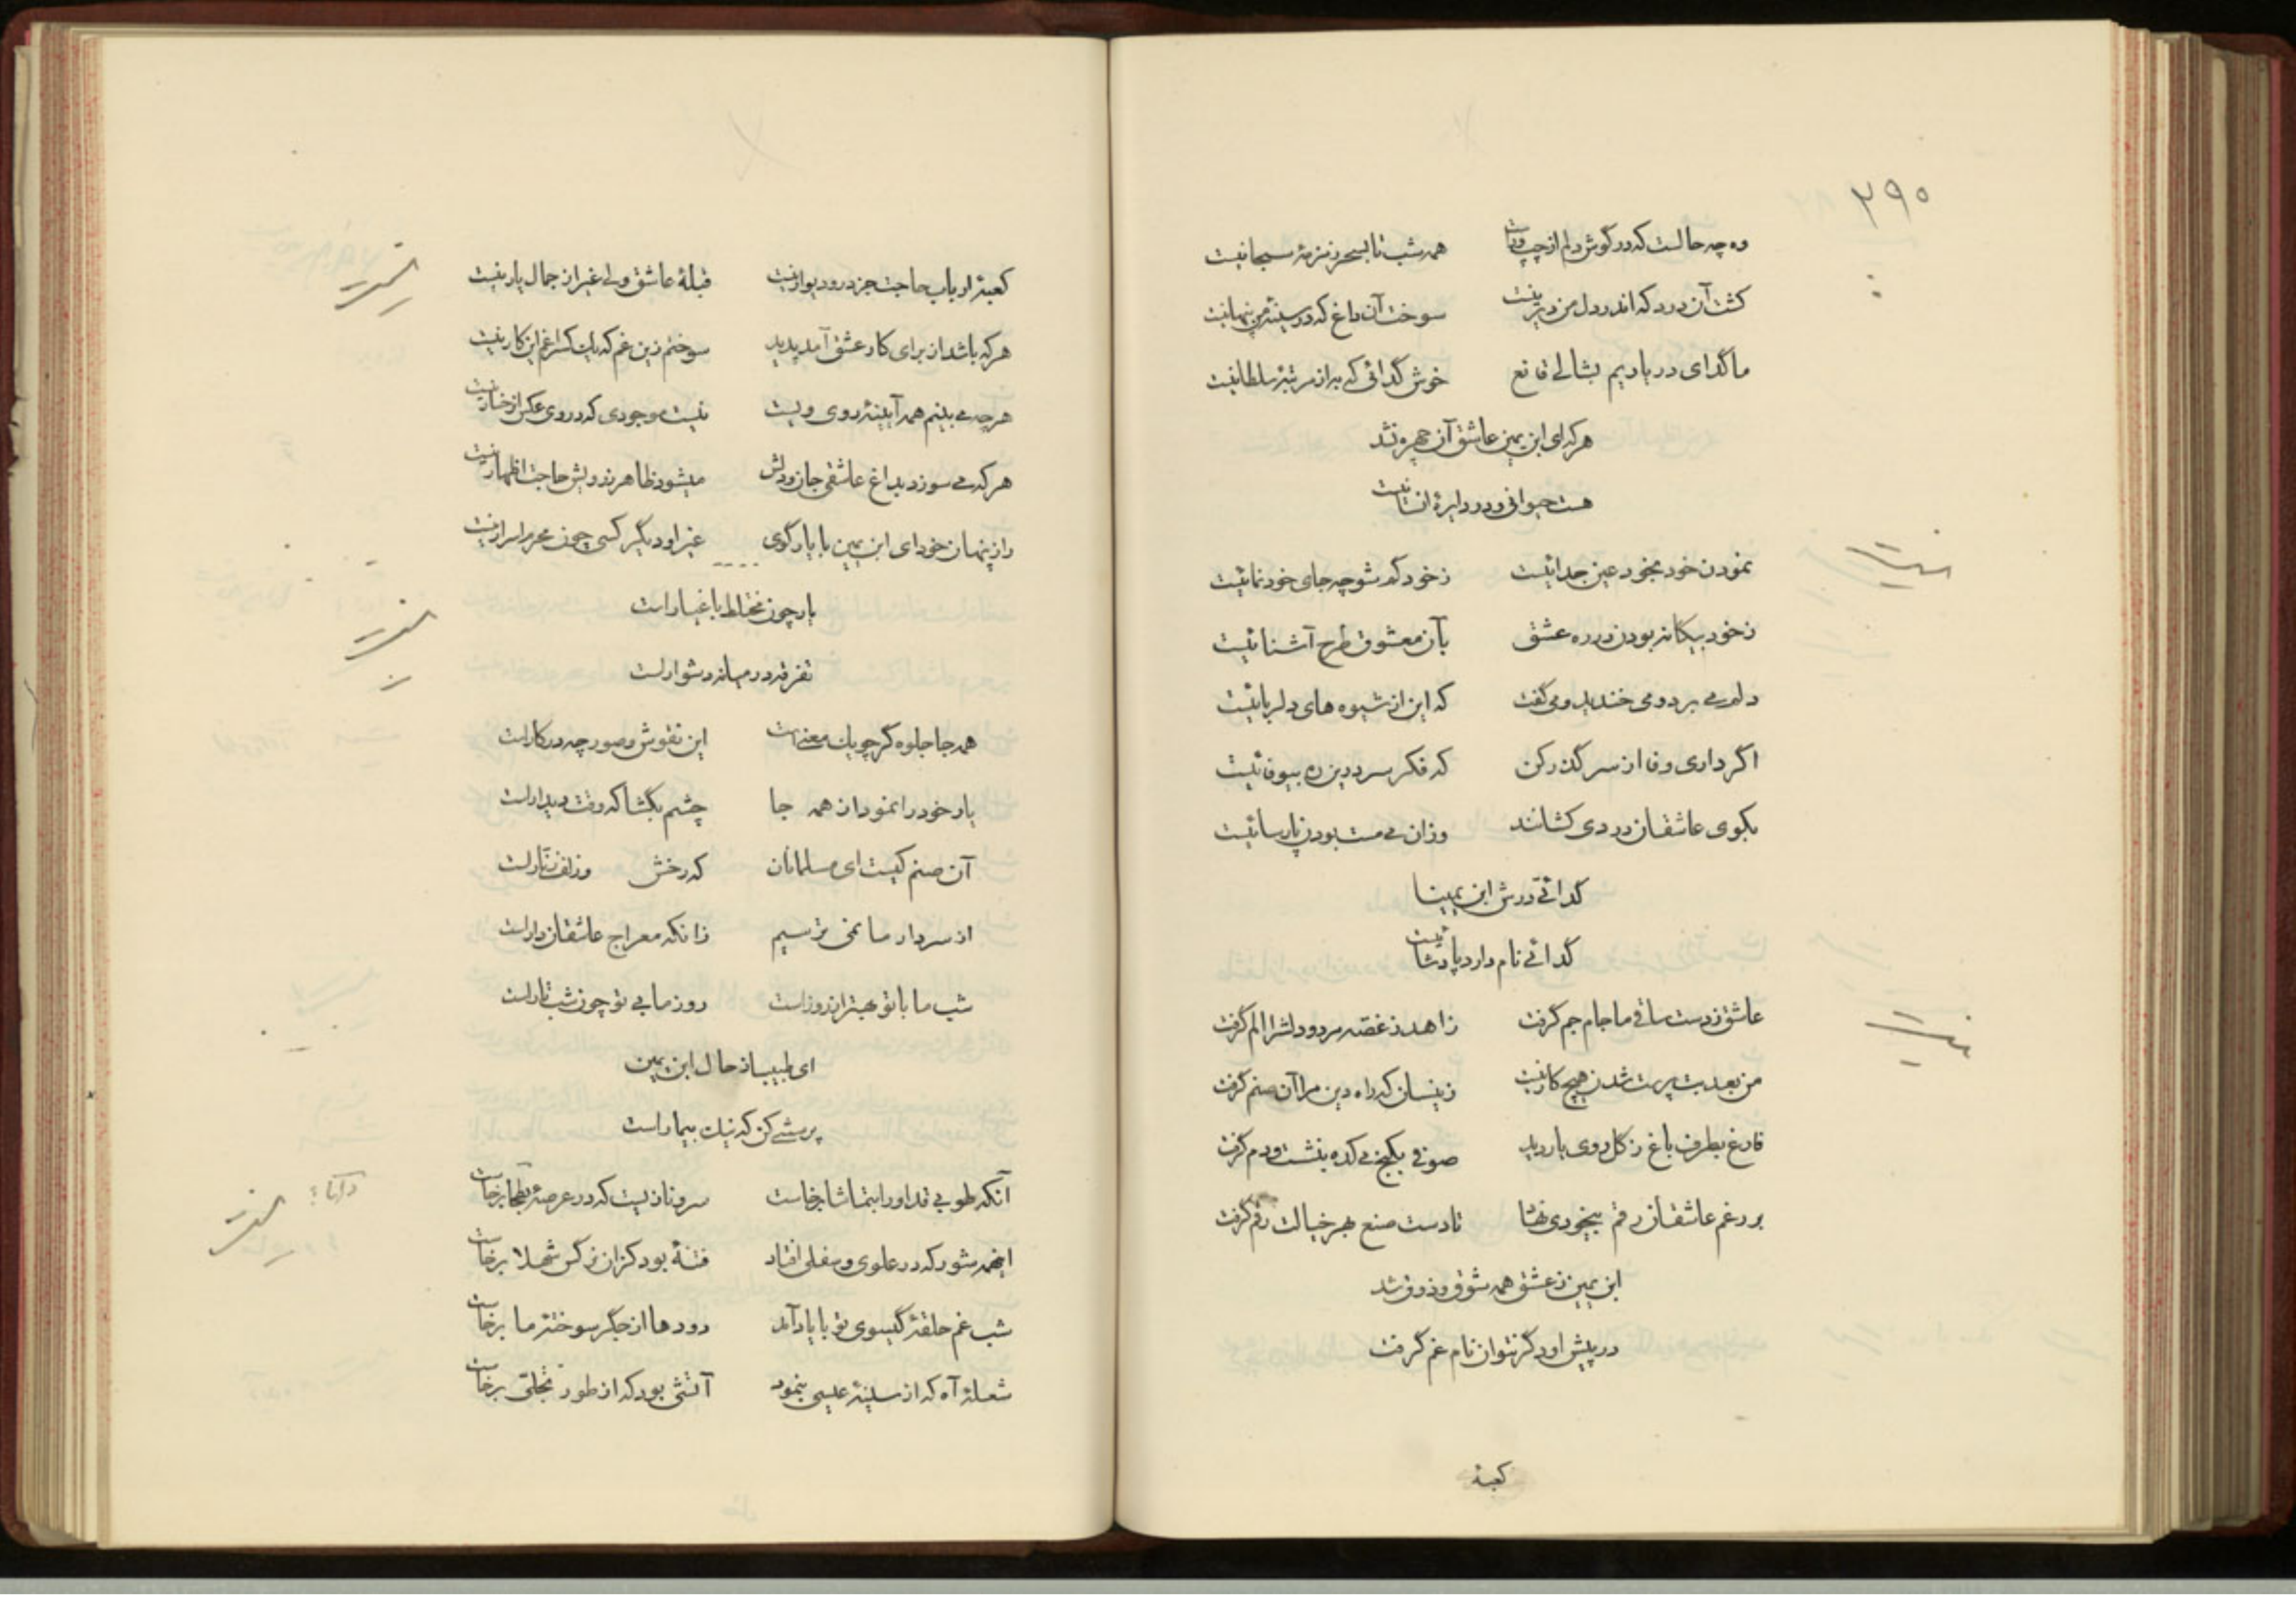 ۲۹۰
وه چه حالست که در گوش دلم از چپ و راست همه شب تا بسحر زمزمهٔ سبحانیست
کشت آن درد که اندر دل من دیرینست سوخت آن داغ که در سینهٔ من پنهانیست
ما گدای در یاریم بشالی قانع خوش گدائی که به از مرتبهٔ سلطانیست
هر که ای ابن یمین عاشق آن چهره نشد
هست حیوانی و در دایرهٔ انسانیست
نمودن خود بخود عین جدائیست ز خود گم شو چه جای خود نمائیست
ز خود بیگانه بودن در ره عشق بآن معشوق طرح آشنائیست
دلم می برد و می خندید و می گفت که این از شیوه های دلربائیست
اگر داری وفا از سر گذر کن که فکر سر درین ره بیوفائیست
بکوی عاشقان دردی کشانند وزان می مست بودن پارسائیست
گدائی درش ابن یمینا
گدائی نام دارد پادشائیست
عاشق ز دست ساقی ما جام جم گرفت زاهد ز غصه مرد و دلش را الم گرفت
من بعد بت پرست شدن هیچ کار نیست زینسان که راه دین مرا آن صنم گرفت
فارغ بطرف باغ ز گل روی یار دید صوفی بکنج میکده بنشست و دم گرفت
بر رغم عاشقان رقم بیخودی نهاد تا دست صنع بهر خیالت رقم گرفت
ابن یمین ز عشق همه شوق و ذوق شد
در پیش او دگر نتوان نام غم گرفت
کعبهٔ
کعبهٔ ارباب حاجت جز در و دیوار نیست قبلهٔ عاشق ولی غیر از جمال یار نیست
هر که باشد از برای کار عشق آمد پدید سوختم زین غم که یک کس را غم این کار نیست
هر چه می بینم همه آیینهٔ روی ویست نیست موجودی که در وی عکس از رخسار نیست
هر که می سوزد بداغ عاشقی جان و دلش میشود ظاهر بدو لیش حاجت اظهار نیست
راز پنهان خود ای ابن یمین با یار گوی غیر او دیگر کسی چون محرم اسرار نیست
یار چون مختلط باغیار است
تفرقه در میانه دشوار است
همه جا جلوه گر چو یک معنی است این نقوش و صور چه در کار است
یار خود را نمود از همه جا چشم بگشا که وقت دیدار است
آن صنم کیست ای مسلمانان که رخش و زلف زنار است
از سر دار ما نمی ترسیم زانکه معراج عاشقان دار است
شب ما با تو بهتر از روز است روز ما بی تو چون شب تار است
ای طبیب از حال ابن یمین
پرسشی کن که نیک بیمار است
آنکه طوبی قد او را بتماشا برخاست سرو نازیست که در عرصهٔ بطحا برخاست
اینهمه شور که در علوی و سفلی افتاد فتنهٔ بود کزان نرگس شهلا برخاست
شب غم حلقهٔ گیسوی تو با یاد آمد دودها از جگر سوختهٔ ما برخاست
شعلهٔ آه که از سینهٔ عیسی بنمود آتشی بود که از طور تجلی برخاست